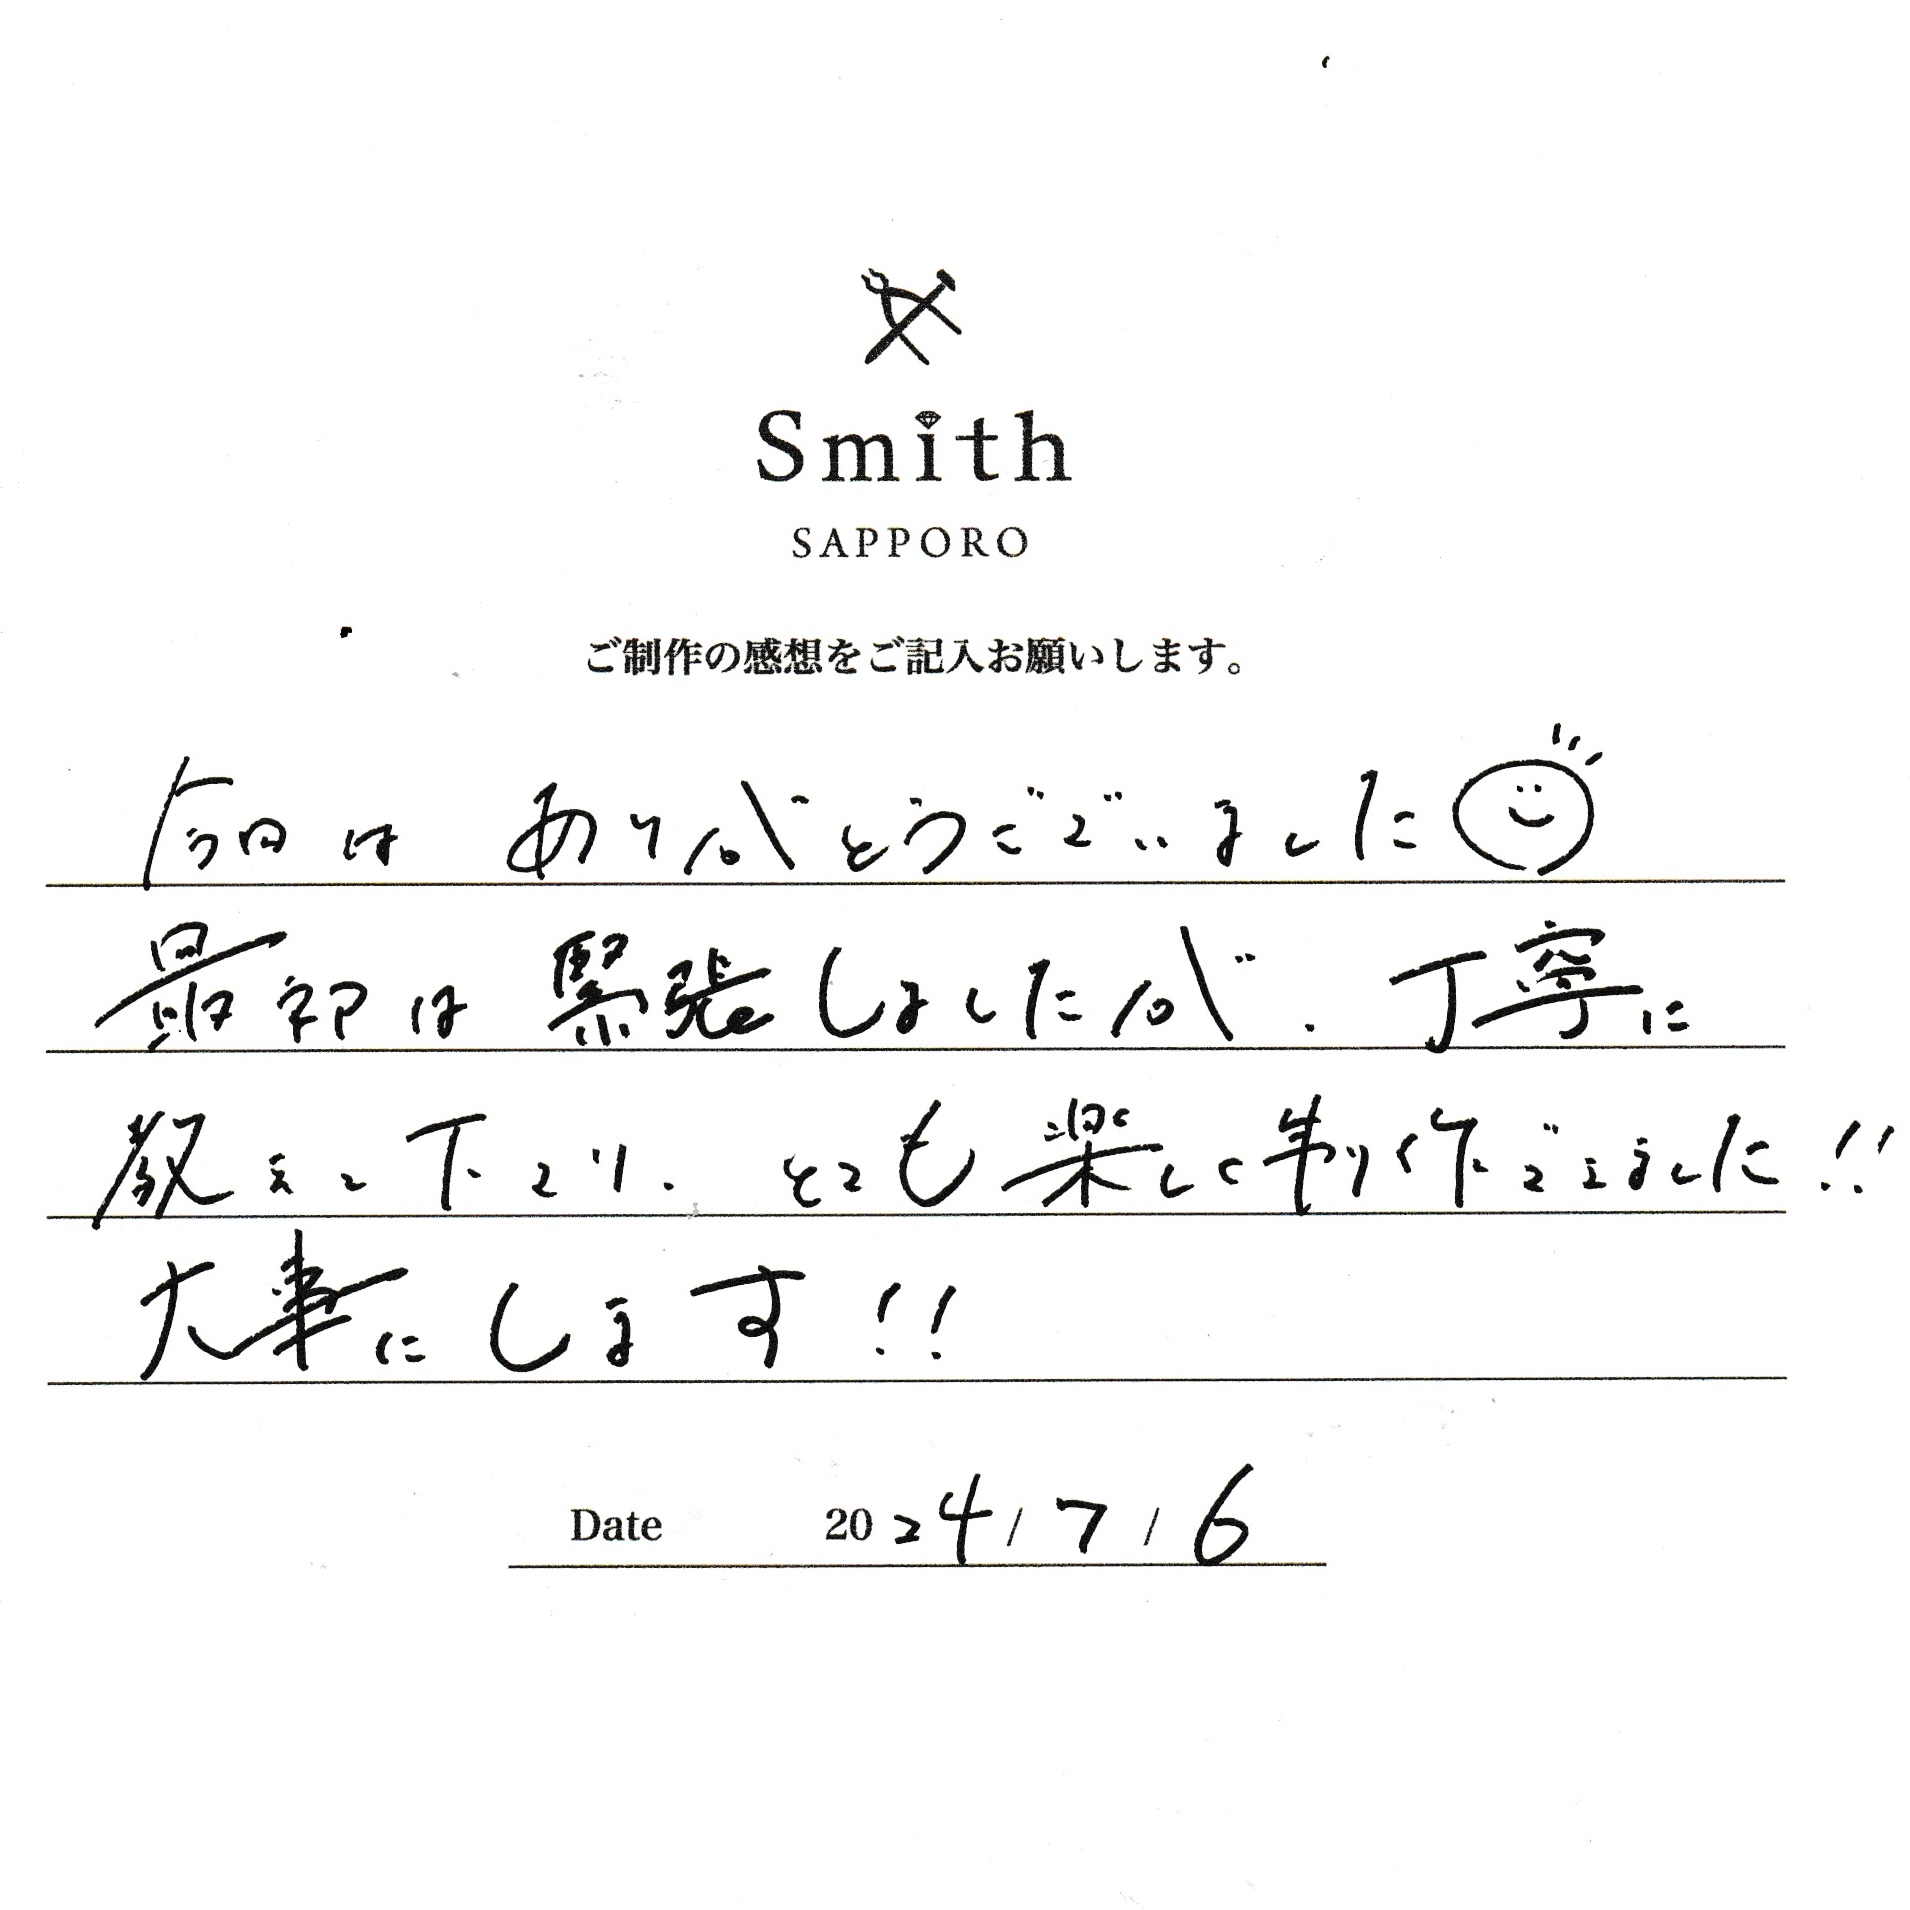 Smith
SAPPORO
ご制作の感想をご記入お願いします。
今回は ありがとうございました
最初は 緊張しましたが、丁寧に
教えて下さり、とても楽しく制作できました!!
大事にします!!
Date 2024/7/6